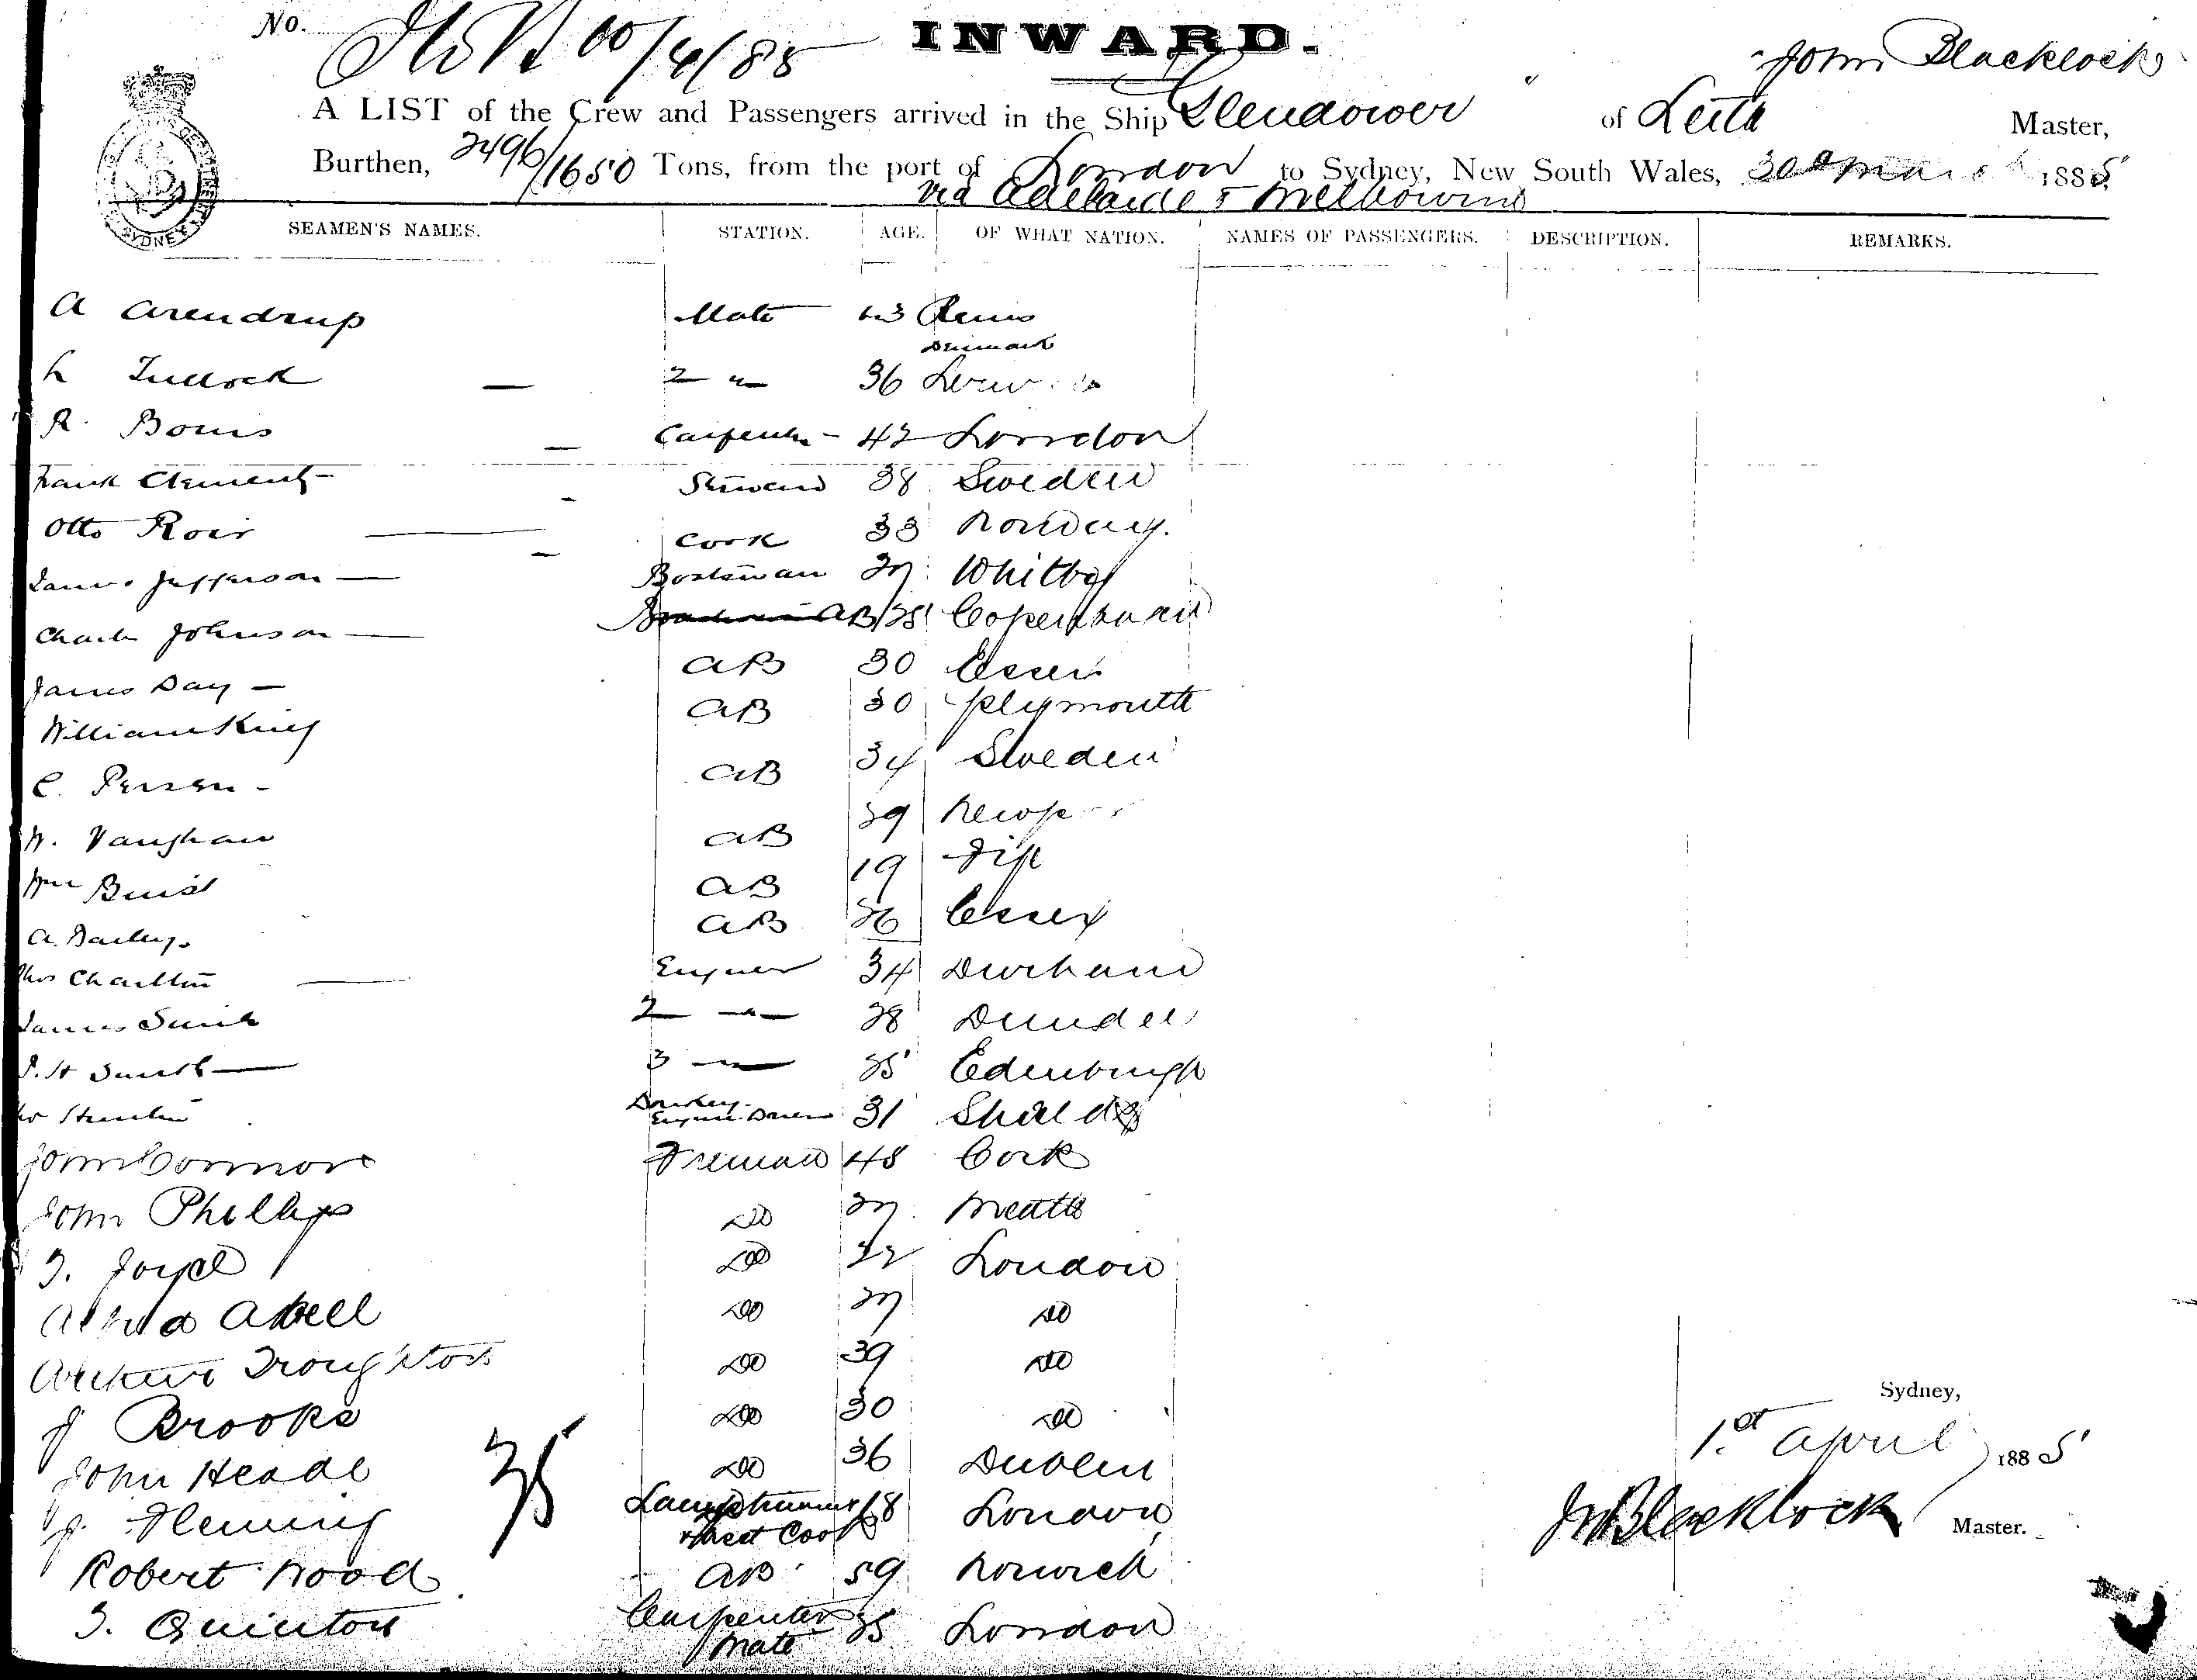 No.
INWARD.
John Blacklock
A LIST of the Crew and Passengers arrived in the Ship Glendower of Leith Master,
Burthen, 2496/1650 Tons, from the port of London to Sydney, New South Wales, 30th March 1885
via Adelaide & Melbourne
SEAMEN'S NAMES. STATION. AGE. OF WHAT NATION. NAMES OF PASSENGERS. DESCRIPTION. REMARKS.
A Arendrup Mate 43
Denmark
L Tullock 2 " 36
R. Carpenter 42 London
Frank Clement Steward 38 Sweden
Otto Cook 33 Norway.
James Jefferson Boatswain 27 Whitby
Charles Johnson AB 28 Copenhagen
James Day AB 30 Essex
William King AB 30 Plymouth
C. Persen AB 34 Sweden
W. Vaughan AB 39
Wm Buist AB 19 Fife
A. Bailey. AB 26 Essex
Thos Charlton Engineer 34 Durham
James Smith 2 " 28 Dundee
J. H Smith 3 " 25 Edenburgh
Donkey
Engine Driver 31 Shields
John Connor Fireman 48 Cork
John Phillips Do 27 Meath
J. Joyce Do London
Alfred Abell Do 27 Do
Arthur Troughton Do 39 Do
J Brooks Do 30 Do
John Heade Do 36 Dublin
J. Fleming Lamptrimmer 18 London
& asst Cook
Robert Wood AB 59 Norwich
J. Quinton Carpenters 35 London
Mate
35
Sydney,
1st April 1885
J Blacklock Master.